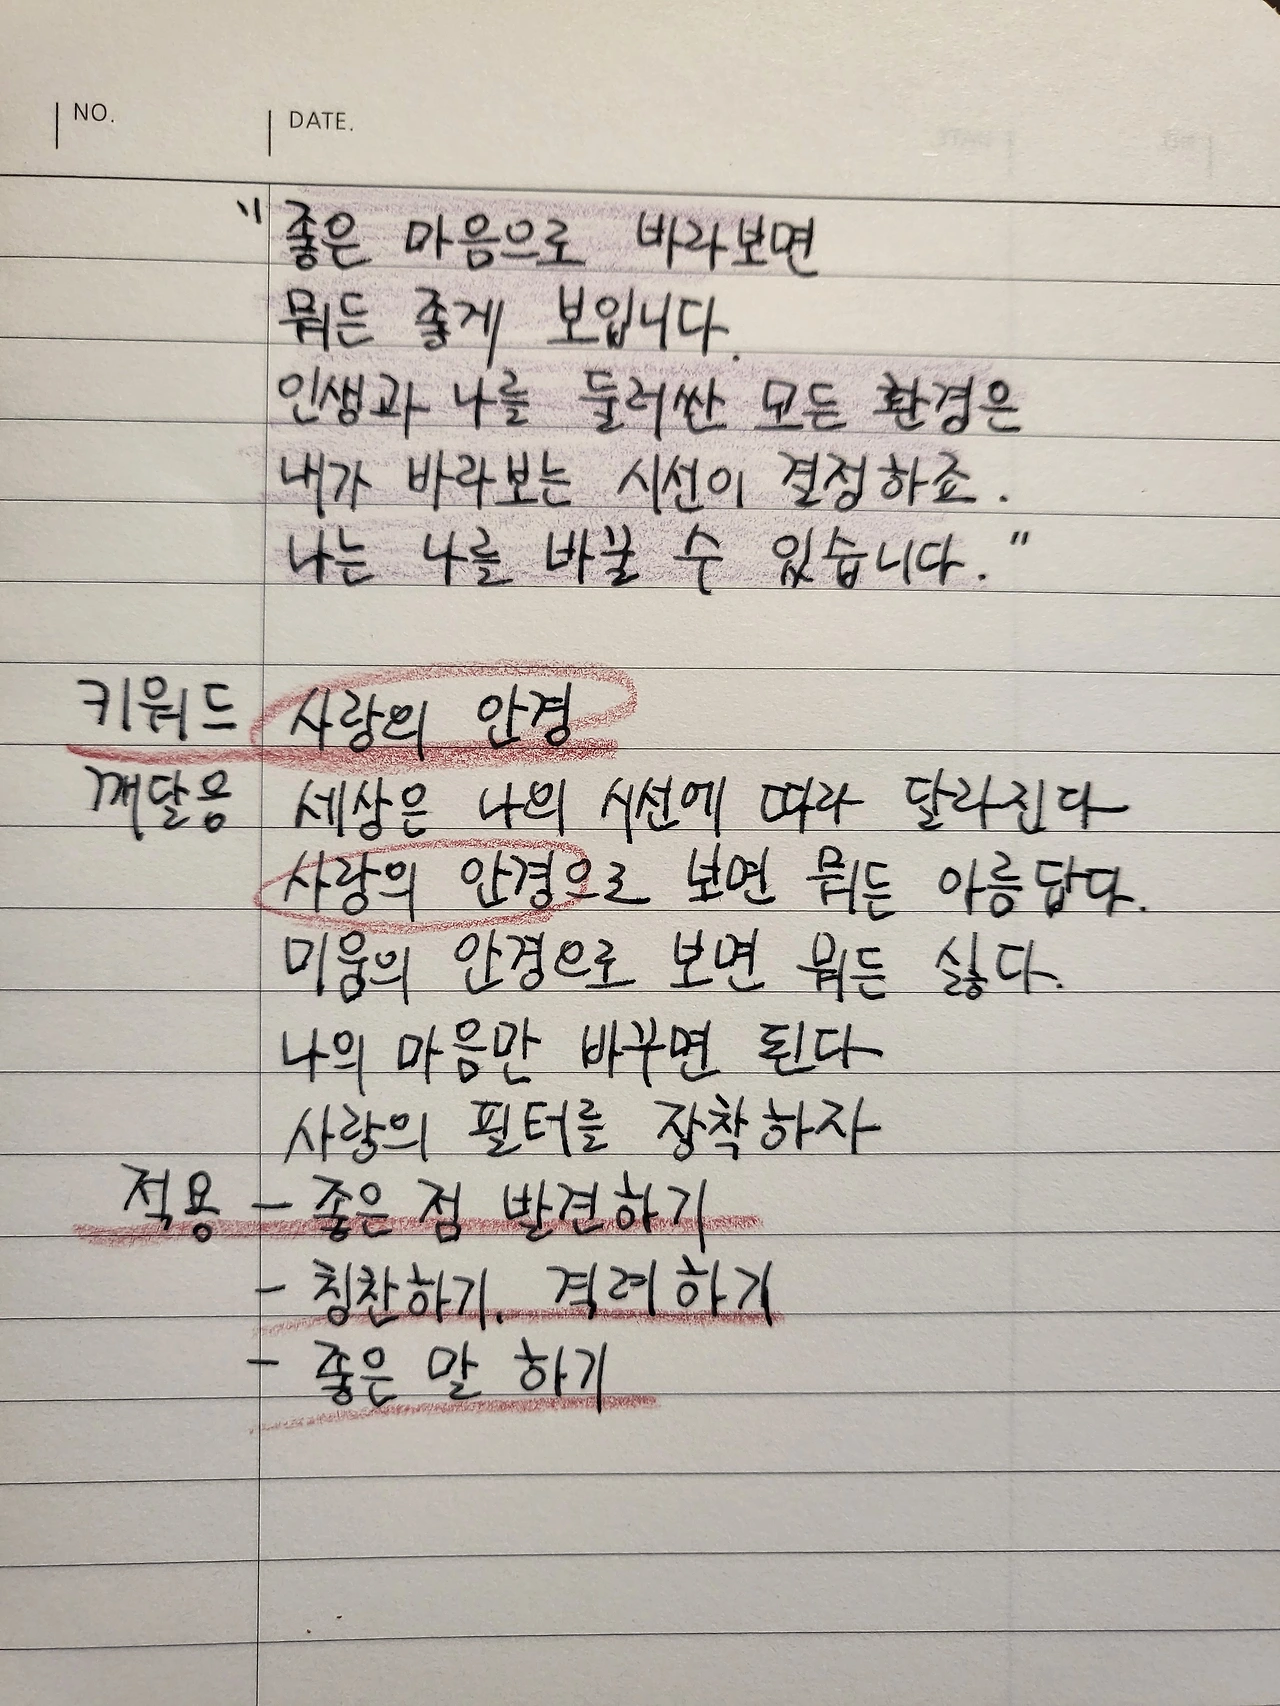 NO. DATE.
"좋은 마음으로 바라보면
뭐든 좋게 보입니다.
인생과 나를 둘러싼 모든 환경은
내가 바라보는 시선이 결정하죠.
나는 나를 바꿀 수 있습니다."
키워드 사랑의 안경
깨달음 세상은 나의 시선에 따라 달라진다
사랑의 안경으로 보면 뭐든 아름답다.
미움의 안경으로 보면 뭐든 싫다.
나의 마음만 바꾸면 된다
사랑의 필터를 장착하자
적용 - 좋은 점 발견하기
- 칭찬하기. 격려하기
- 좋은 말 하기